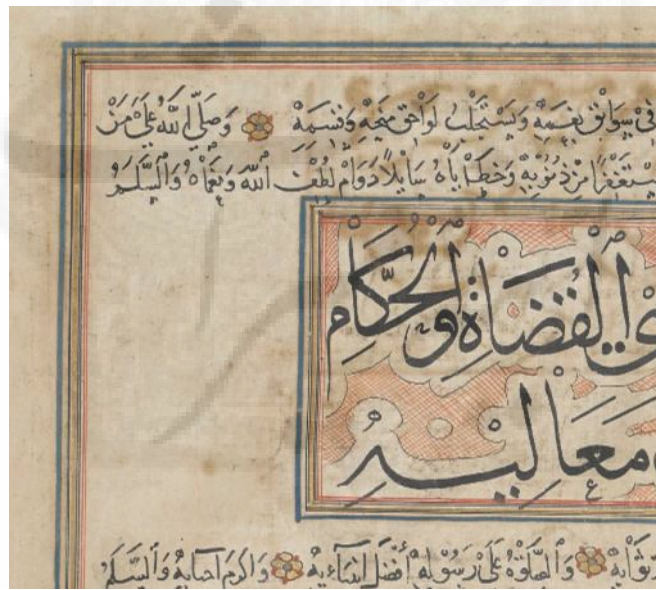 في سوابق نعمه ويستجلب لواحق منحه وقسمه وصلى الله على من
مستغفرا من ذنوبه وخطاياه سايلا دوام لطف الله ونعماه والسلم
القضاة والحكام
معاليه
ثوابه والصلوة على رسوله أفضل انبيايه واكرم احبايه والسلم